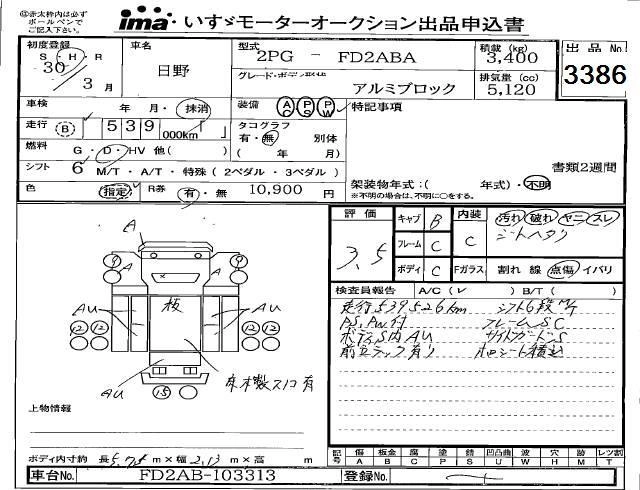 ◎赤太枠内は必ず
ボールペンで
ご記入下さい。
ima いすゞモーターオークション出品申込書
初度登録 S・H・R 30 / 3 月
車名 日野
型式 2PG - FD2ABA
積載 (kg) 3,400
出品 No. 3386
グレード・ボディ形状 アルミブロック
排気量 (cc) 5,120
車検 年 月・抹消
装備 AC PS PW
特記事項
走行 (B) 539 000km「 」
タコグラフ 有・無 別体
( 年 月)
燃料 G・D・HV 他( )
書類2週間
シフト 6 M/T・A/T・特殊(2ペダル・3ペダル)
架装物年式:( 年式)・不明
※不明の場合は、不明に○をする。
色 (指定) R券 有・無 10,900 円
評価 3.5
キャブ B
フレーム C
ボディ C
内装 C
Fガラス
汚れ 破れ ヤニ スレ
シートヘタリ
割れ 線 点傷 イバリ
検査員報告 A/C(レ) B/T( )
走行539526km シフト6段M/T
PS,PW付 フレームSC
ボディS内AU サイドガードS
前立ラック有り ホロシート積込
A
A A
AU 板 AU
12 12 12 12
AU 床木数スコ有
15
上物情報
ボディ内寸約 長5.75m×幅2.13m×高 m
記号 傷A 板金B 腐C 凹P 錆S 凹凸曲U 波W 穴H 跡M レツ割T
車台No. FD2AB-103313
登録No.